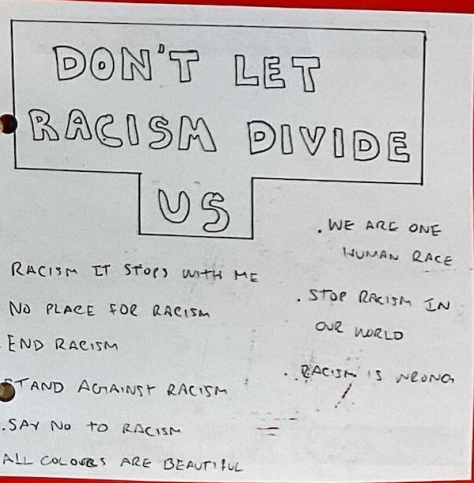 DON'T LET
RACISM DIVIDE
US
RACISM IT STOPS WITH ME
NO PLACE FOR RACISM
END RACISM
STAND AGAINST RACISM
.SAY NO TO RACISM
ALL COLOURS ARE BEAUTIFUL
. WE ARE ONE
HUMAN RACE
. STOP RACISM IN
OUR WORLD
. RACISM IS WRONG